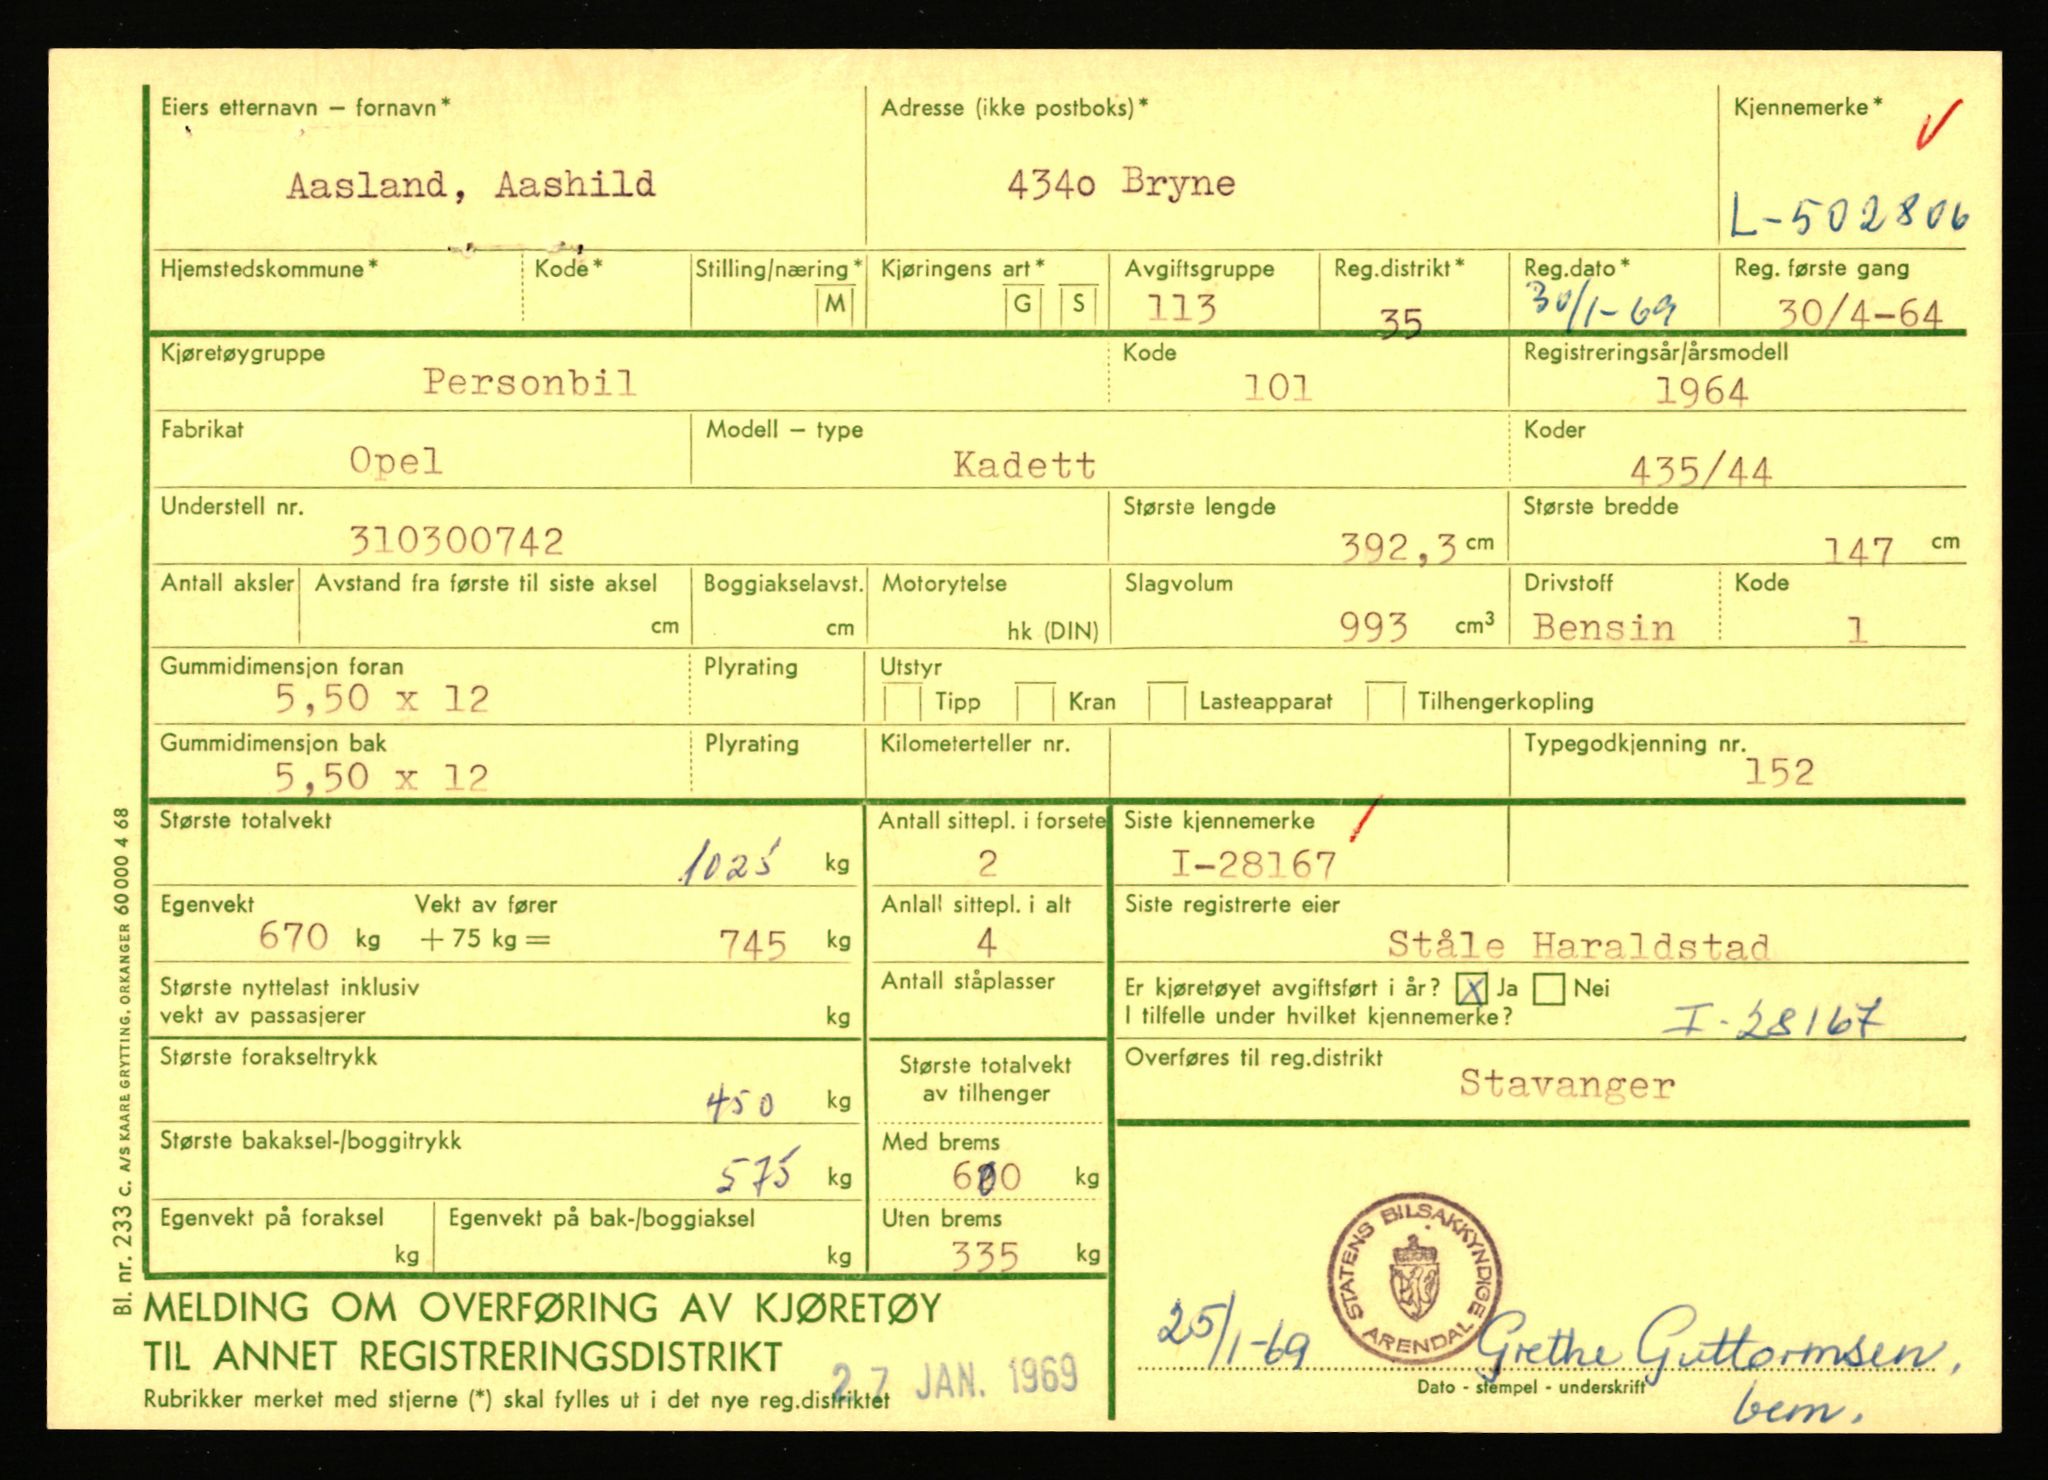 Eiers etternavn – fornavn*
Aasland, Aashild
Adresse (ikke postboks)*
434o Bryne
Kjennemerke*
L-502806
Hjemstedskommune*
Kode*
Stilling/næring*
M
Kjøringens art*
G S
Avgiftsgruppe
113
Reg.distrikt*
35
Reg.dato*
30/1-69
Reg. første gang
30/4-64
Kjøretøygruppe
Personbil
Kode
101
Registreringsår/årsmodell
1964
Fabrikat
Opel
Modell – type
Kadett
Koder
435/44
Understell nr.
310300742
Største lengde
392,3 cm
Største bredde
147 cm
Antall aksler
Avstand fra første til siste aksel
cm
Boggiakselavst.
cm
Motorytelse
hk (DIN)
Slagvolum
993 cm³
Drivstoff
Bensin
Kode
1
Gummidimensjon foran
5,50 x 12
Plyrating
Utstyr
Tipp Kran Lasteapparat Tilhengerkopling
Gummidimensjon bak
5,50 x 12
Plyrating
Kilometerteller nr.
Typegodkjenning nr.
152
Største totalvekt
1025 kg
Antall sittepl. i forsete
2
Siste kjennemerke
I-28167
Egenvekt
670 kg
Vekt av fører
+ 75 kg = 745 kg
Anlall sittepl. i alt
4
Siste registrerte eier
Ståle Haraldstad
Største nyttelast inklusiv
vekt av passasjerer kg
Antall ståplasser
Er kjøretøyet avgiftsført i år? X Ja Nei
I tilfelle under hvilket kjennemerke? I-28167
Største forakseltrykk
450 kg
Største totalvekt
av tilhenger
Overføres til reg.distrikt
Stavanger
Største bakaksel-/boggitrykk
575 kg
Med brems
600 kg
Egenvekt på foraksel
kg
Egenvekt på bak-/boggiaksel
kg
Uten brems
335 kg
STATENS BILSAKKYNDIGE
ARENDAL
25/1-69 Grethe Guttormsen,
bem.
Dato - stempel - underskrift
MELDING OM OVERFØRING AV KJØRETØY
TIL ANNET REGISTRERINGSDISTRIKT
27 JAN. 1969
Rubrikker merket med stjerne (*) skal fylles ut i det nye reg.distriktet
Bl. nr. 233 C. A/S KAARE GRYTTING, ORKANGER 60 000 4 68